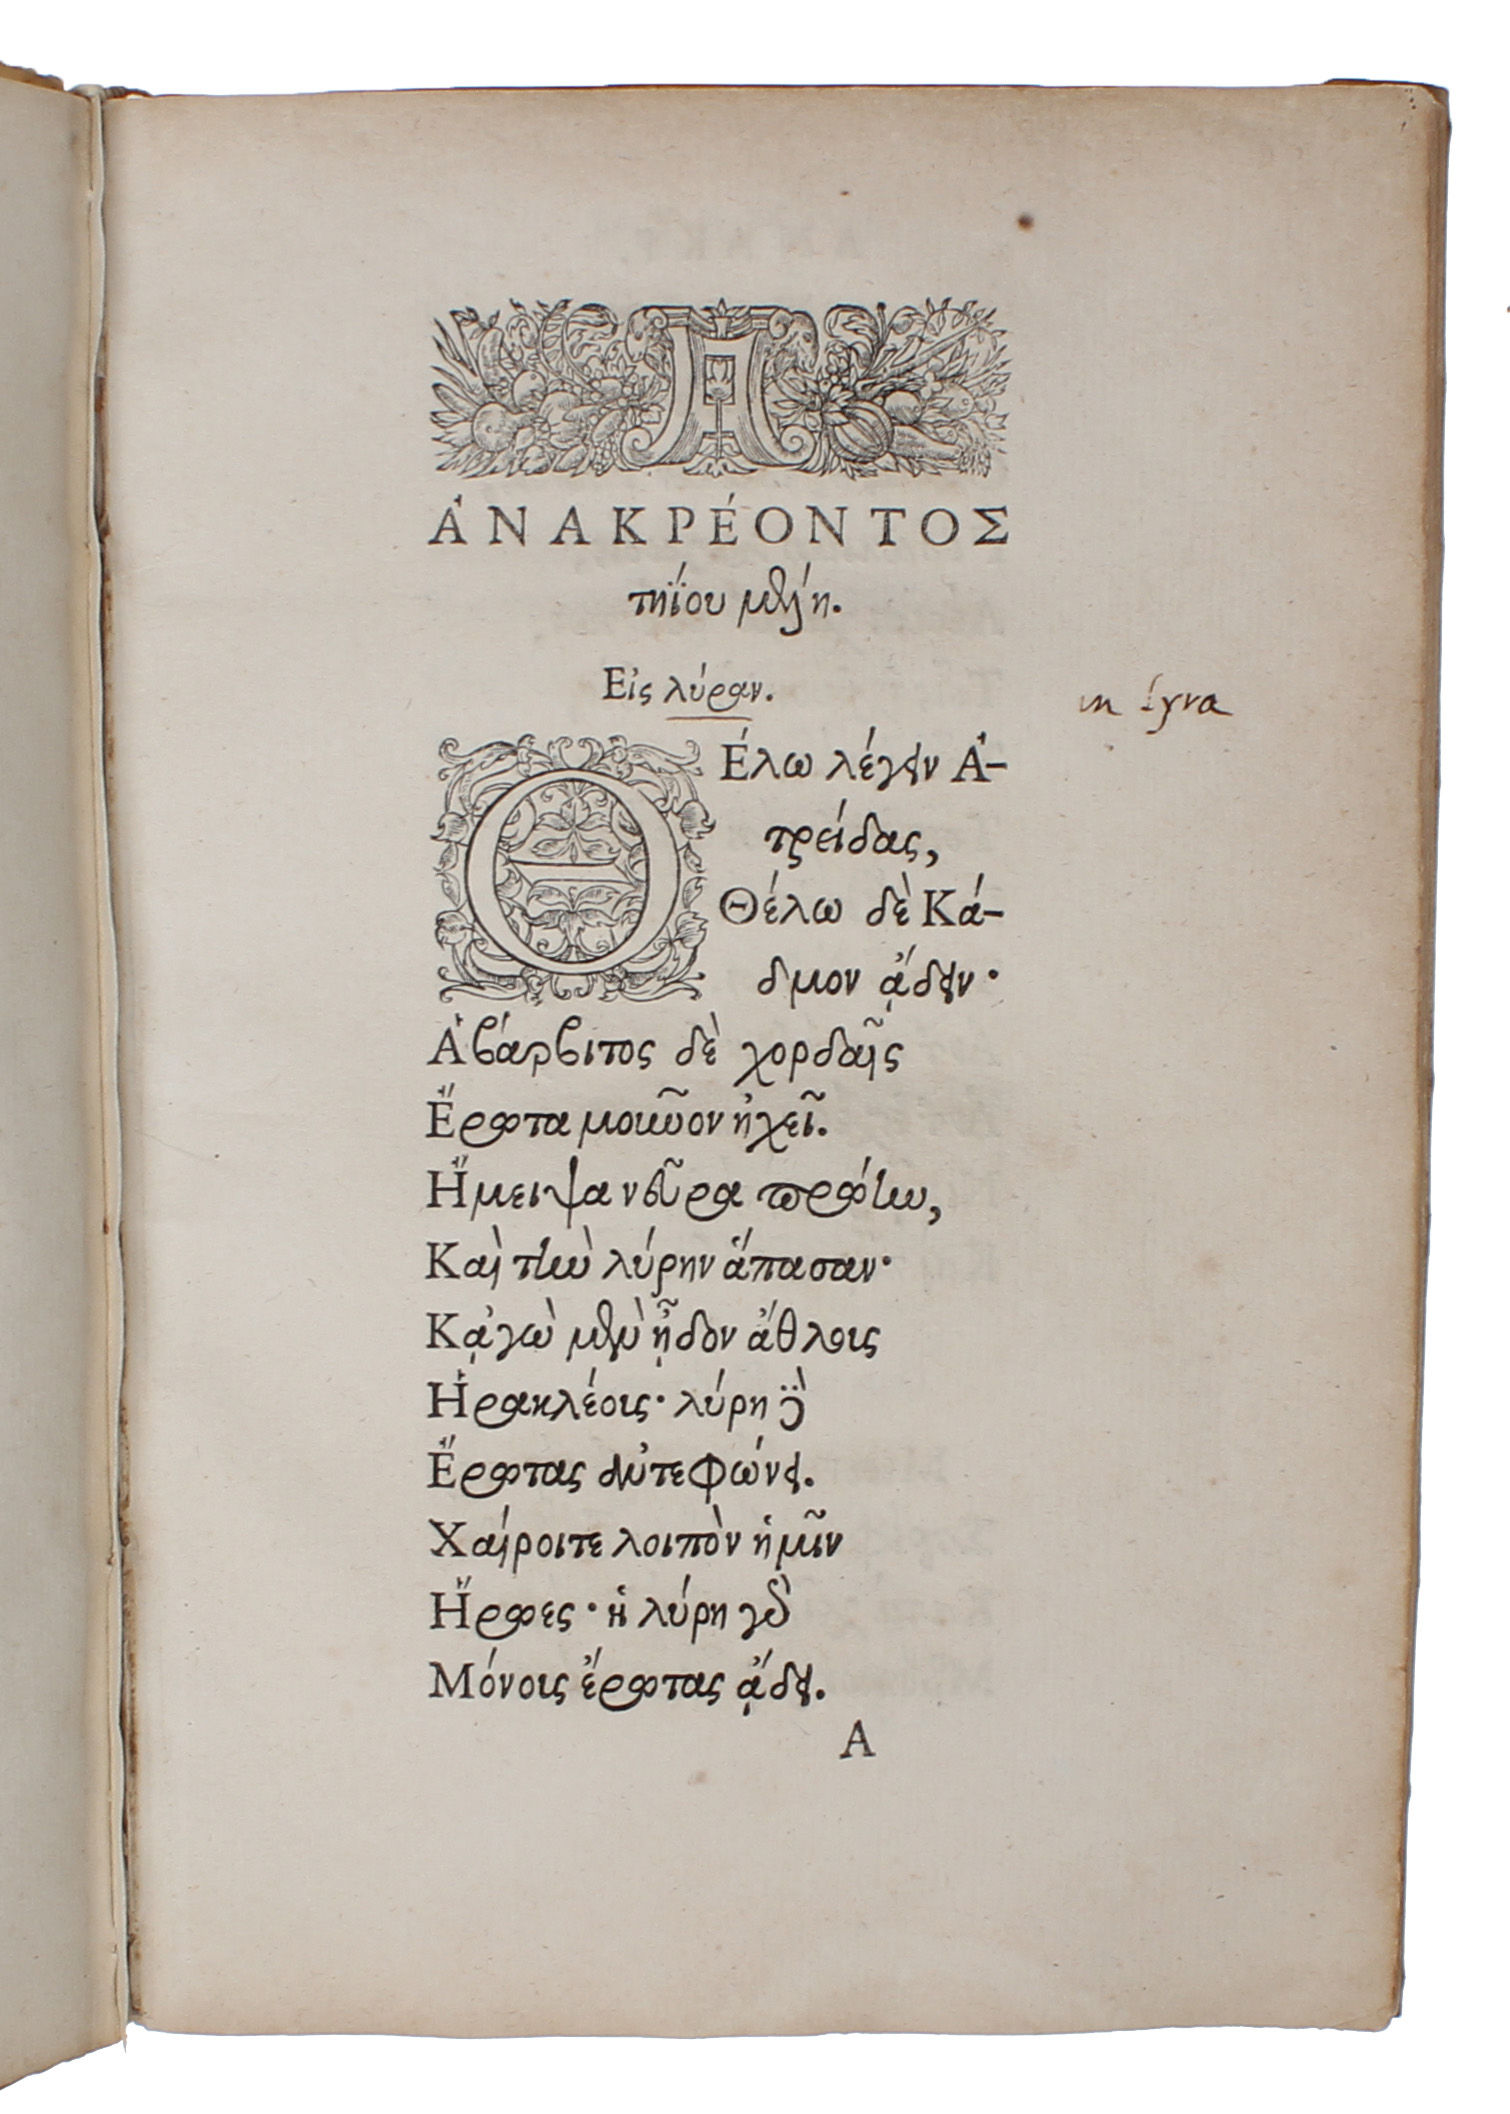 ἈΝΑΚΡΈΟΝΤΟΣ
τηΐου μέλη.
Εἰς λύραν.
in lyra
ΘΈλω λέγειν Ἀ-
τρείδας,
Θέλω δὲ Κά-
δμον ᾄδειν·
Ἁ βάρβιτος δὲ χορδαῖς
Ἔρωτα μοῦνον ἠχεῖ.
Ἤμειψα νεῦρα πρώην,
Καὶ τὴν λύρην ἅπασαν·
Κᾀγὼ μὲν ᾖδον ἄθλοις
Ἡρακλέοις· λύρη δὲ
Ἔρωτας ἀντεφώνει.
Χαίροιτε λοιπὸν ἡμῖν
Ἥρωες· ἡ λύρη γὰρ
Μόνοις ἔρωτας ᾄδει.
A